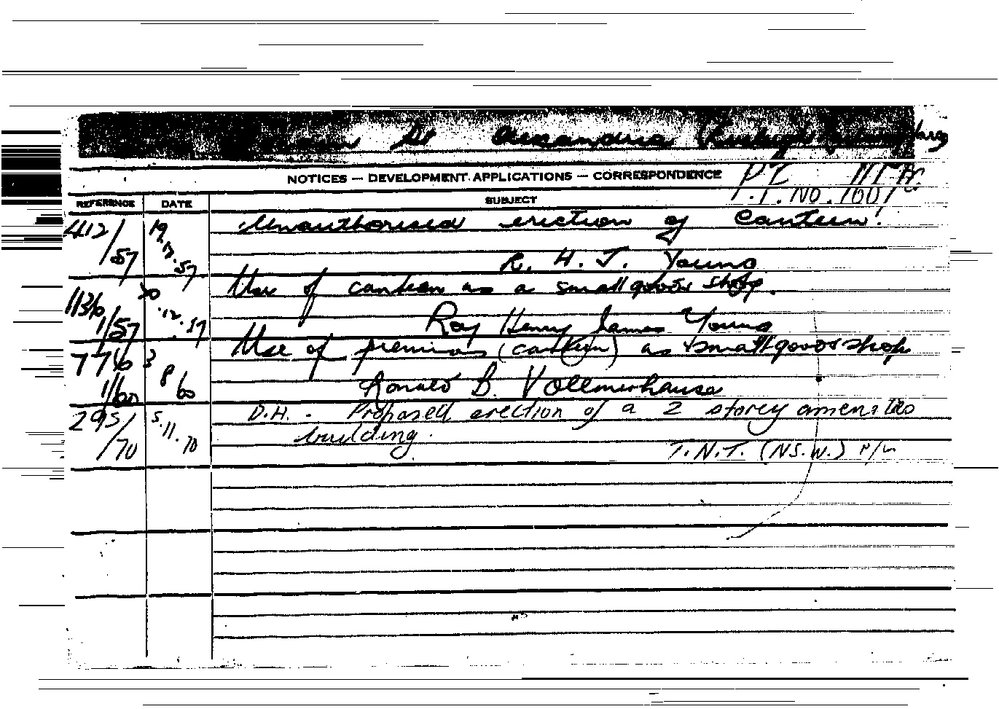 St Alexandria
NOTICES — DEVELOPMENT APPLICATIONS — CORRESPONDENCE
P.T. No. 1601
REFERENCE DATE SUBJECT
412/57 19.12.57 Unauthorised erection of Canteen.
R. H. J. Young
1136/57 30.12.57 Use of canteen as a smallgoods shop.
Roy Henry James Young
776/60 3 8 60 Use of premises (canteen) as smallgoods shop
Ronald B. Vollmerhause
295/70 5.11.70 D.H. - Proposed erection of a 2 storey amenities
building.
T.N.T. (N.S.W.) P/L